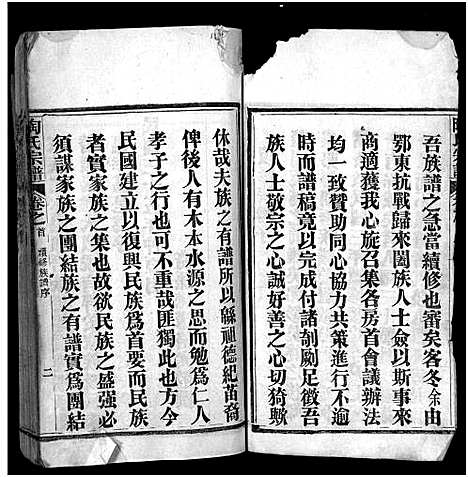 吾族譜之急當續修也審矣客冬余由
鄂東抗戰歸來闔族人士僉以斯事來
商適獲我心旋召集各房首會議辦法
均一致贊助同心協力共策進行不逾
時而譜稿竟以完成付諸剞劂足徵吾
族人士敬宗之心誠好善之心切猗歟
休哉夫族之有譜所以緜祖德紀苗裔
俾後人有木本水源之思而勉為仁人
孝子之行也可不重哉匪獨此也方今
民國建立以復興民族為首要而民族
者實家族之集也故欲民族之盛强必
須謀家族之團結族之有譜實為團結
陶氏宗譜 卷之首 續修族譜序 二